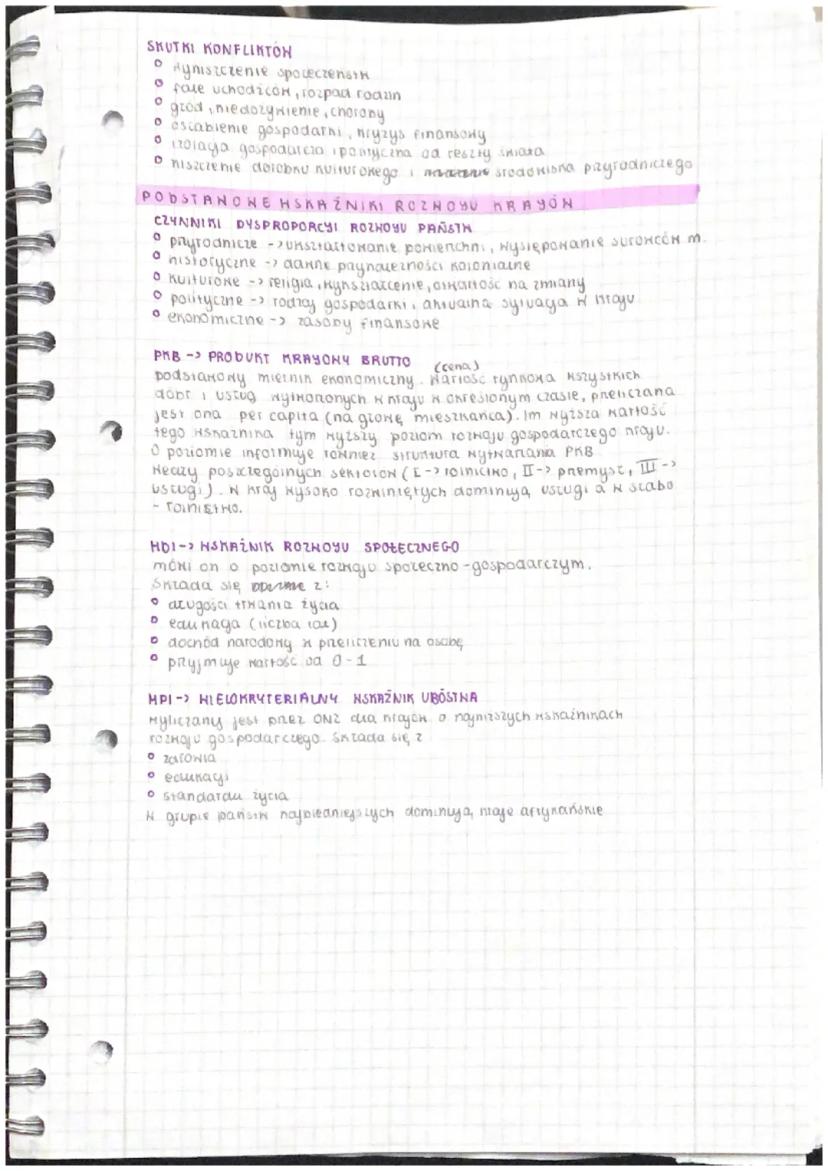 SKUTKI KONFLIKTÓW
wyniszczenie społeczeństw
fale uchodźców, rozpad rodzin
głód, niedożywienie, choroby
osłabienie gospodarki, kryzys finansowy
izolacja gospodarcza i polityczna od reszty świata
niszczenie dorobku kulturowego i środowiska przyrodniczego
PODSTAWOWE WSKAŹNIKI ROZWOJU KRAJÓW
CZYNNIKI DYSPROPORCJI ROZWOJU PAŃSTW
przyrodnicze -> ukształtowanie powierzchni, występowanie surowców m.
historyczne -> dawne przynależności kolonialne
kulturowe -> religia, wykształcenie, otwartość na zmiany
polityczne -> rodzaj gospodarki, aktualna sytuacja w kraju
ekonomiczne -> zasoby finansowe
PKB -> PRODUKT KRAJOWY BRUTTO
(cena)
podstawowy miernik ekonomiczny. Wartość rynkowa wszystkich
dóbr i usług wytworzonych w kraju w określonym czasie, przeliczana
jest ona per capita (na głowę mieszkańca). Im wyższa wartość
tego wskaźnika tym wyższy poziom rozwoju gospodarczego kraju.
O poziomie informuje również struktura wytwarzania PKB
według poszczególnych sektorów (I -> rolnictwo, II -> przemysł, III ->
usługi). W kraj wysoko rozwiniętych dominują usługi a w słabo
- rolnictwo.
HDI -> WSKAŹNIK ROZWOJU SPOŁECZNEGO
mówi on o poziomie rozwoju społeczno-gospodarczym.
Składa się z:
długości trwania życia
edukacja (liczba lat)
dochód narodowy w przeliczeniu na osobę
przyjmuje wartość od 0-1
MPI -> WIELOKRYTERIALNY WSKAŹNIK UBÓSTWA
Wyliczany jest przez ONZ dla krajów o najniższych wskaźnikach
rozwoju gospodarczego. Składa się z
zdrowia
edukacji
standardu życia
W grupie państw najbiedniejszych dominują kraje afrykańskie